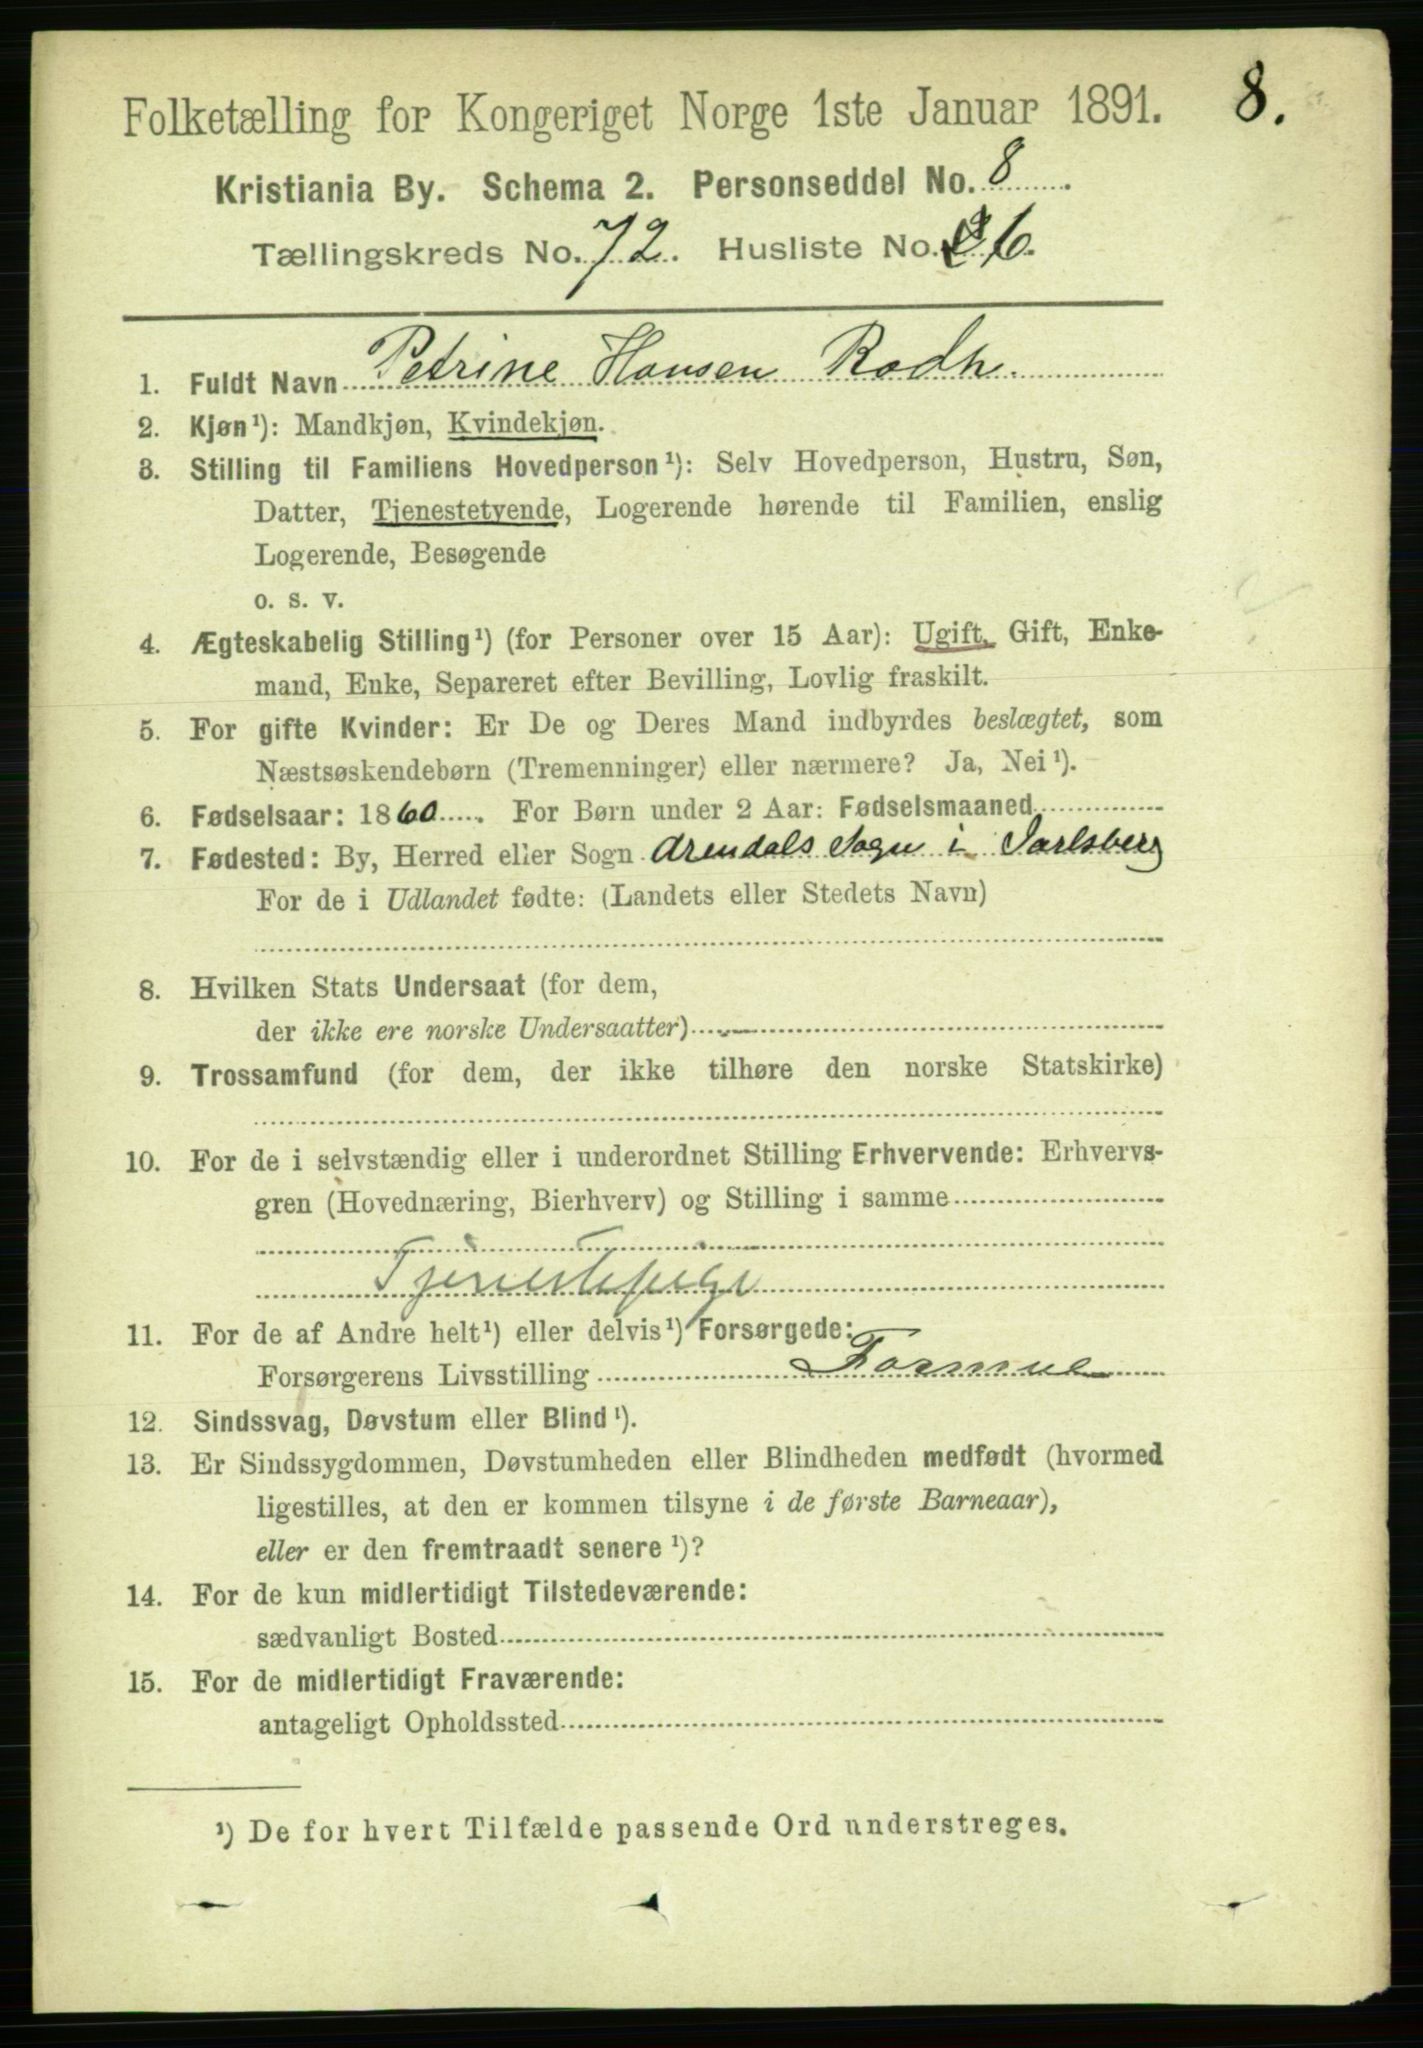 8.
Folketælling for Kongeriget Norge 1ste Januar 1891.
Kristiania By. Schema 2. Personseddel No. 8.
Tællingskreds No. 72. Husliste No. 6.
1. Fuldt Navn Petrine Hansen Rodh.
2. Kjøn¹): Mandkjøn, Kvindekjøn.
3. Stilling til Familiens Hovedperson¹): Selv Hovedperson, Hustru, Søn,
Datter, Tjenestetyende, Logerende hørende til Familien, enslig
Logerende, Besøgende
o. s. v.
4. Ægteskabelig Stilling¹) (for Personer over 15 Aar): Ugift, Gift, Enke-
mand, Enke, Separeret efter Bevilling, Lovlig fraskilt.
5. For gifte Kvinder: Er De og Deres Mand indbyrdes beslægtet, som
Næstsøskendebørn (Tremenninger) eller nærmere? Ja, Nei¹).
6. Fødselsaar: 1860. For Børn under 2 Aar: Fødselsmaaned
7. Fødested: By, Herred eller Sogn Arendals Sogn i Jarlsberg
For de i Udlandet fødte: (Landets eller Stedets Navn)
8. Hvilken Stats Undersaat (for dem,
der ikke ere norske Undersaatter)
9. Trossamfund (for dem, der ikke tilhøre den norske Statskirke)
10. For de i selvstændig eller i underordnet Stilling Erhvervende: Erhvervs-
gren (Hovednæring, Bierhverv) og Stilling i samme
Tjenestepige
11. For de af Andre helt¹) eller delvis¹) Forsørgede:
Forsørgerens Livsstilling Formue
12. Sindssvag, Døvstum eller Blind¹).
13. Er Sindssygdommen, Døvstumheden eller Blindheden medfødt (hvormed
ligestilles, at den er kommen tilsyne i de første Barneaar),
eller er den fremtraadt senere¹)?
14. For de kun midlertidigt Tilstedeværende:
sædvanligt Bosted
15. For de midlertidigt Fraværende:
antageligt Opholdssted
¹) De for hvert Tilfælde passende Ord understreges.